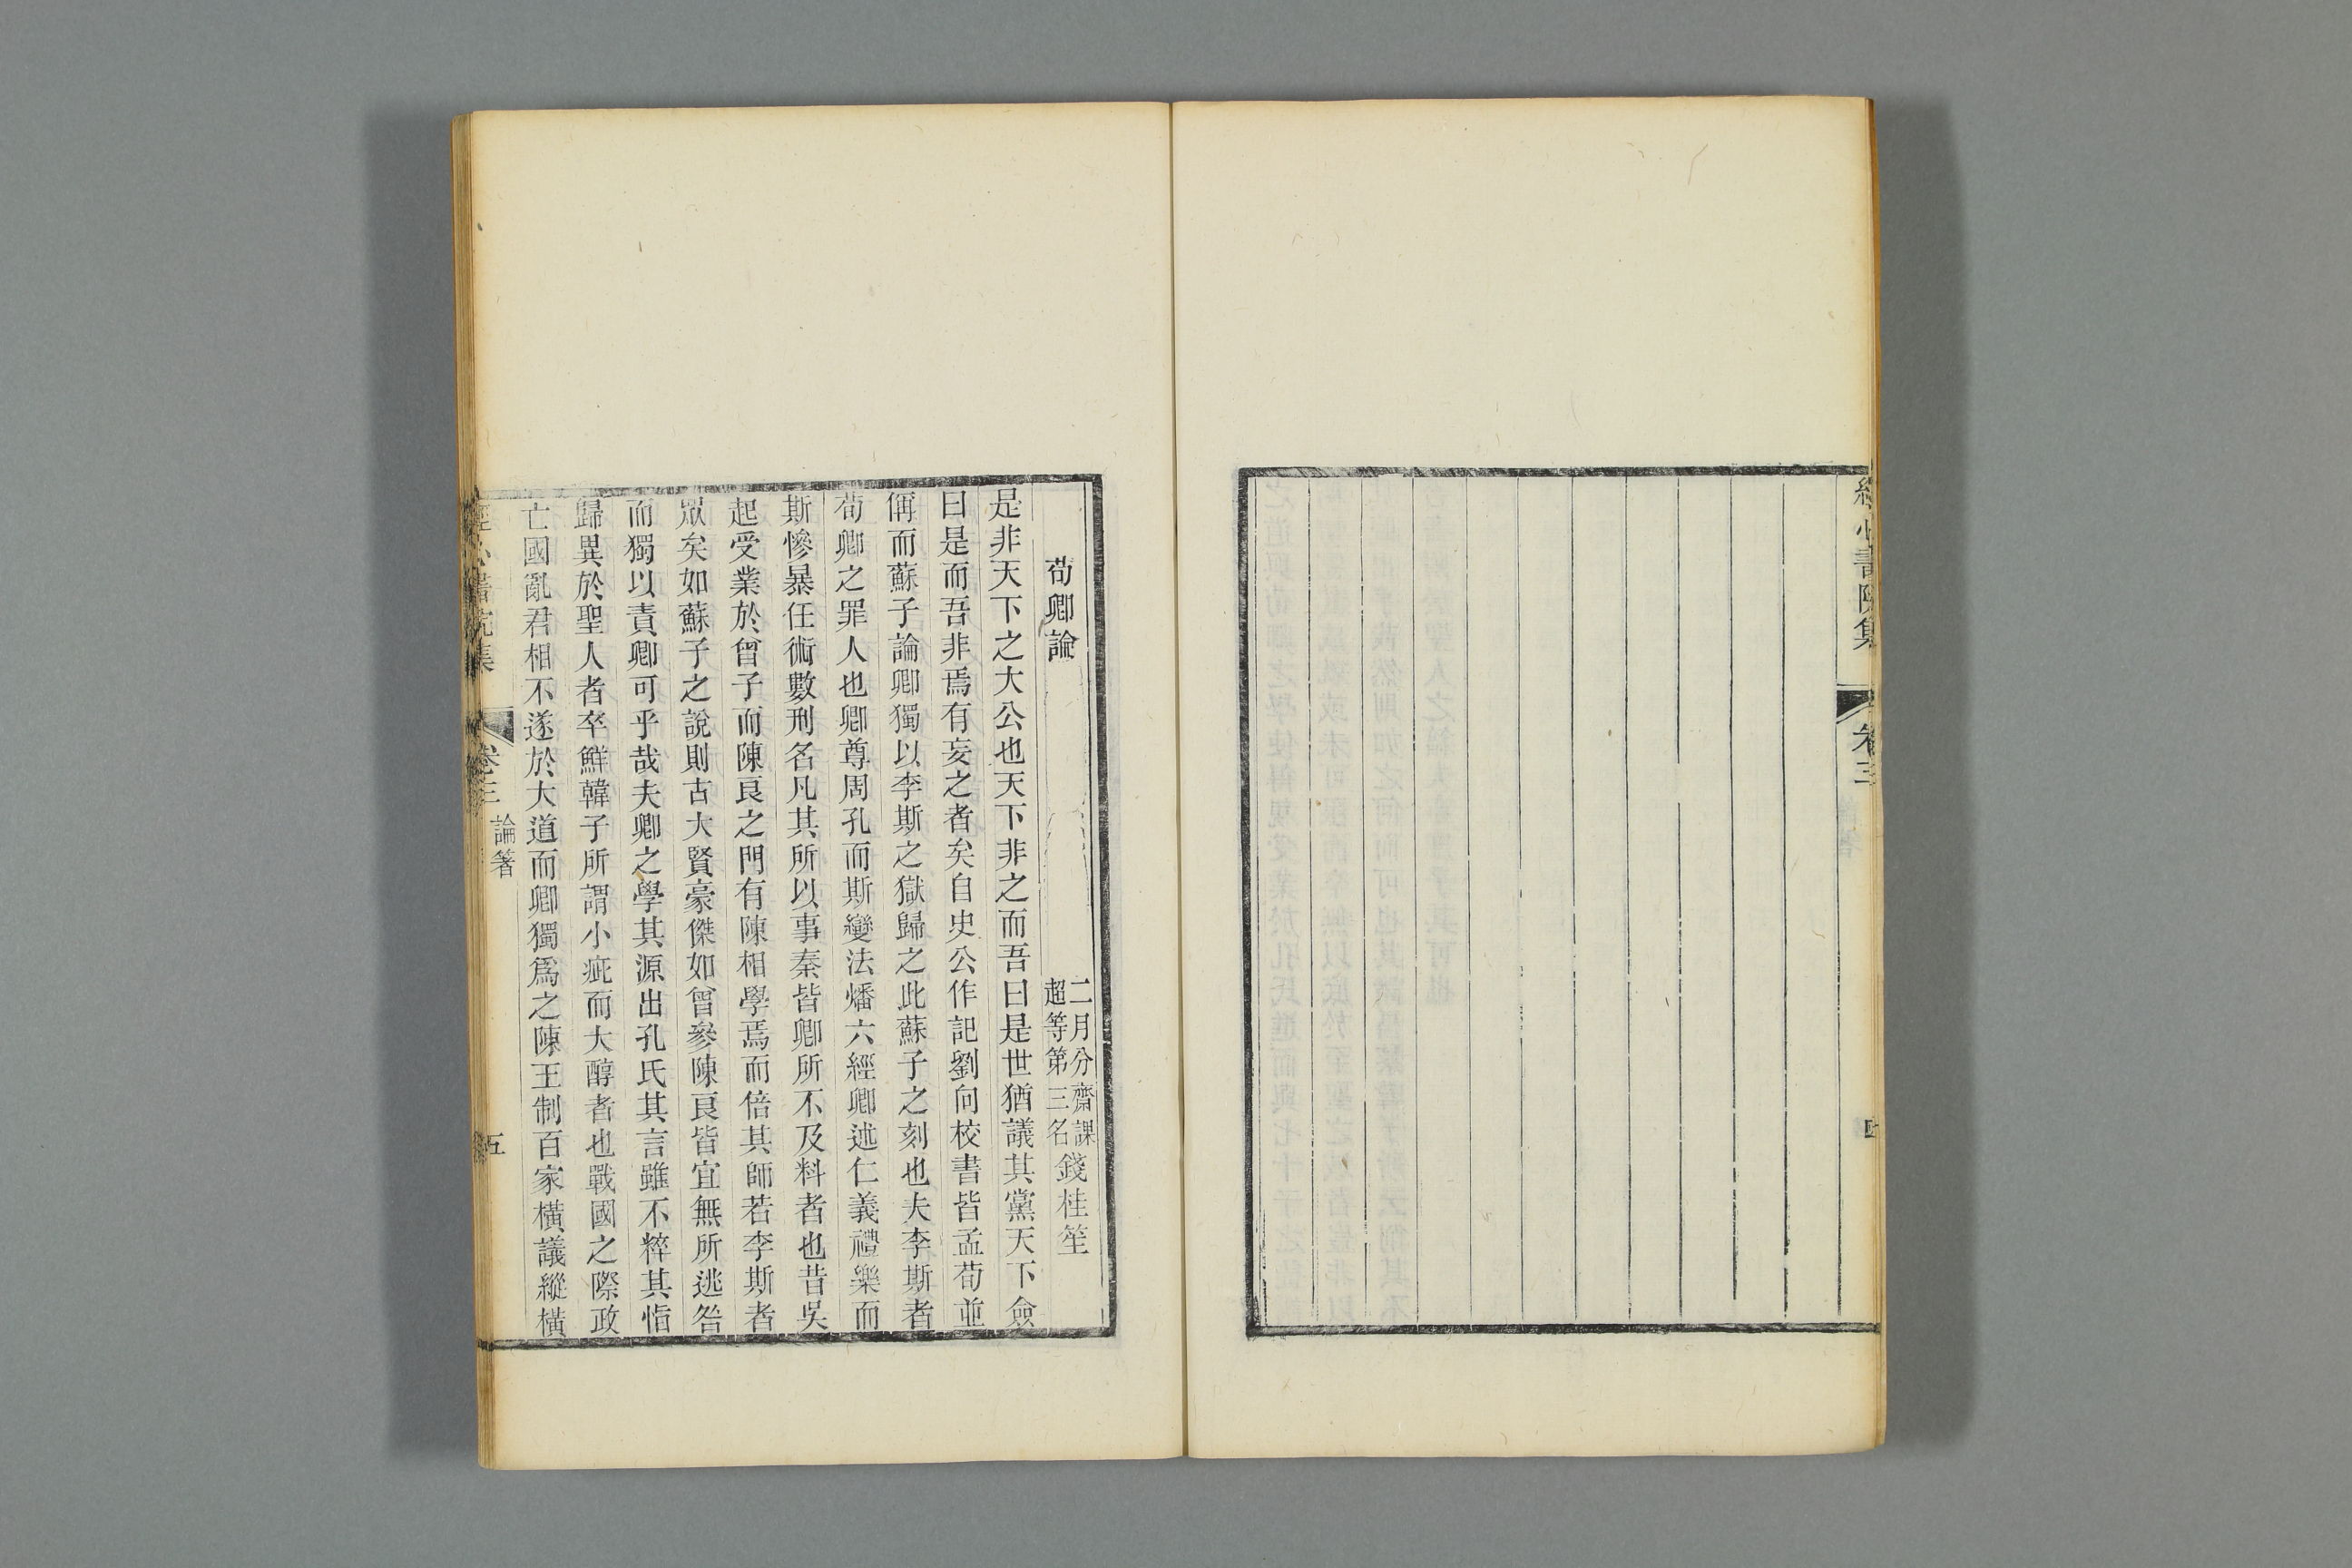 經心書院集
卷三
荀卿論
二月分齋課
超等第三名
錢桂笙
是非天下之大公也天下非之而吾曰是世猶議其黨天下僉
曰是而吾非焉有妄之者矣自史公作記劉向校書皆孟荀並
偁而蘇子論卿獨以李斯之獄歸之此蘇子之刻也夫李斯者
荀卿之罪人也卿尊周孔而斯變法燔六經卿述仁義禮樂而
斯慘暴任術數刑名凡其所以事秦皆卿所不及料者也昔吳
起受業於曾子而陳良之門有陳相學焉而倍其師若李斯者
眾矣如蘇子之說則古大賢豪傑如曾參陳良皆宜無所逃咎
而獨以責卿可乎哉夫卿之學其源出孔氏其言雖不粹其恉
歸異於聖人者卒鮮韓子所謂小疵而大醇者也戰國之際政
亡國亂君相不遂於大道而卿獨爲之陳王制百家橫議縱橫
經心書院集
卷三
論箸
五